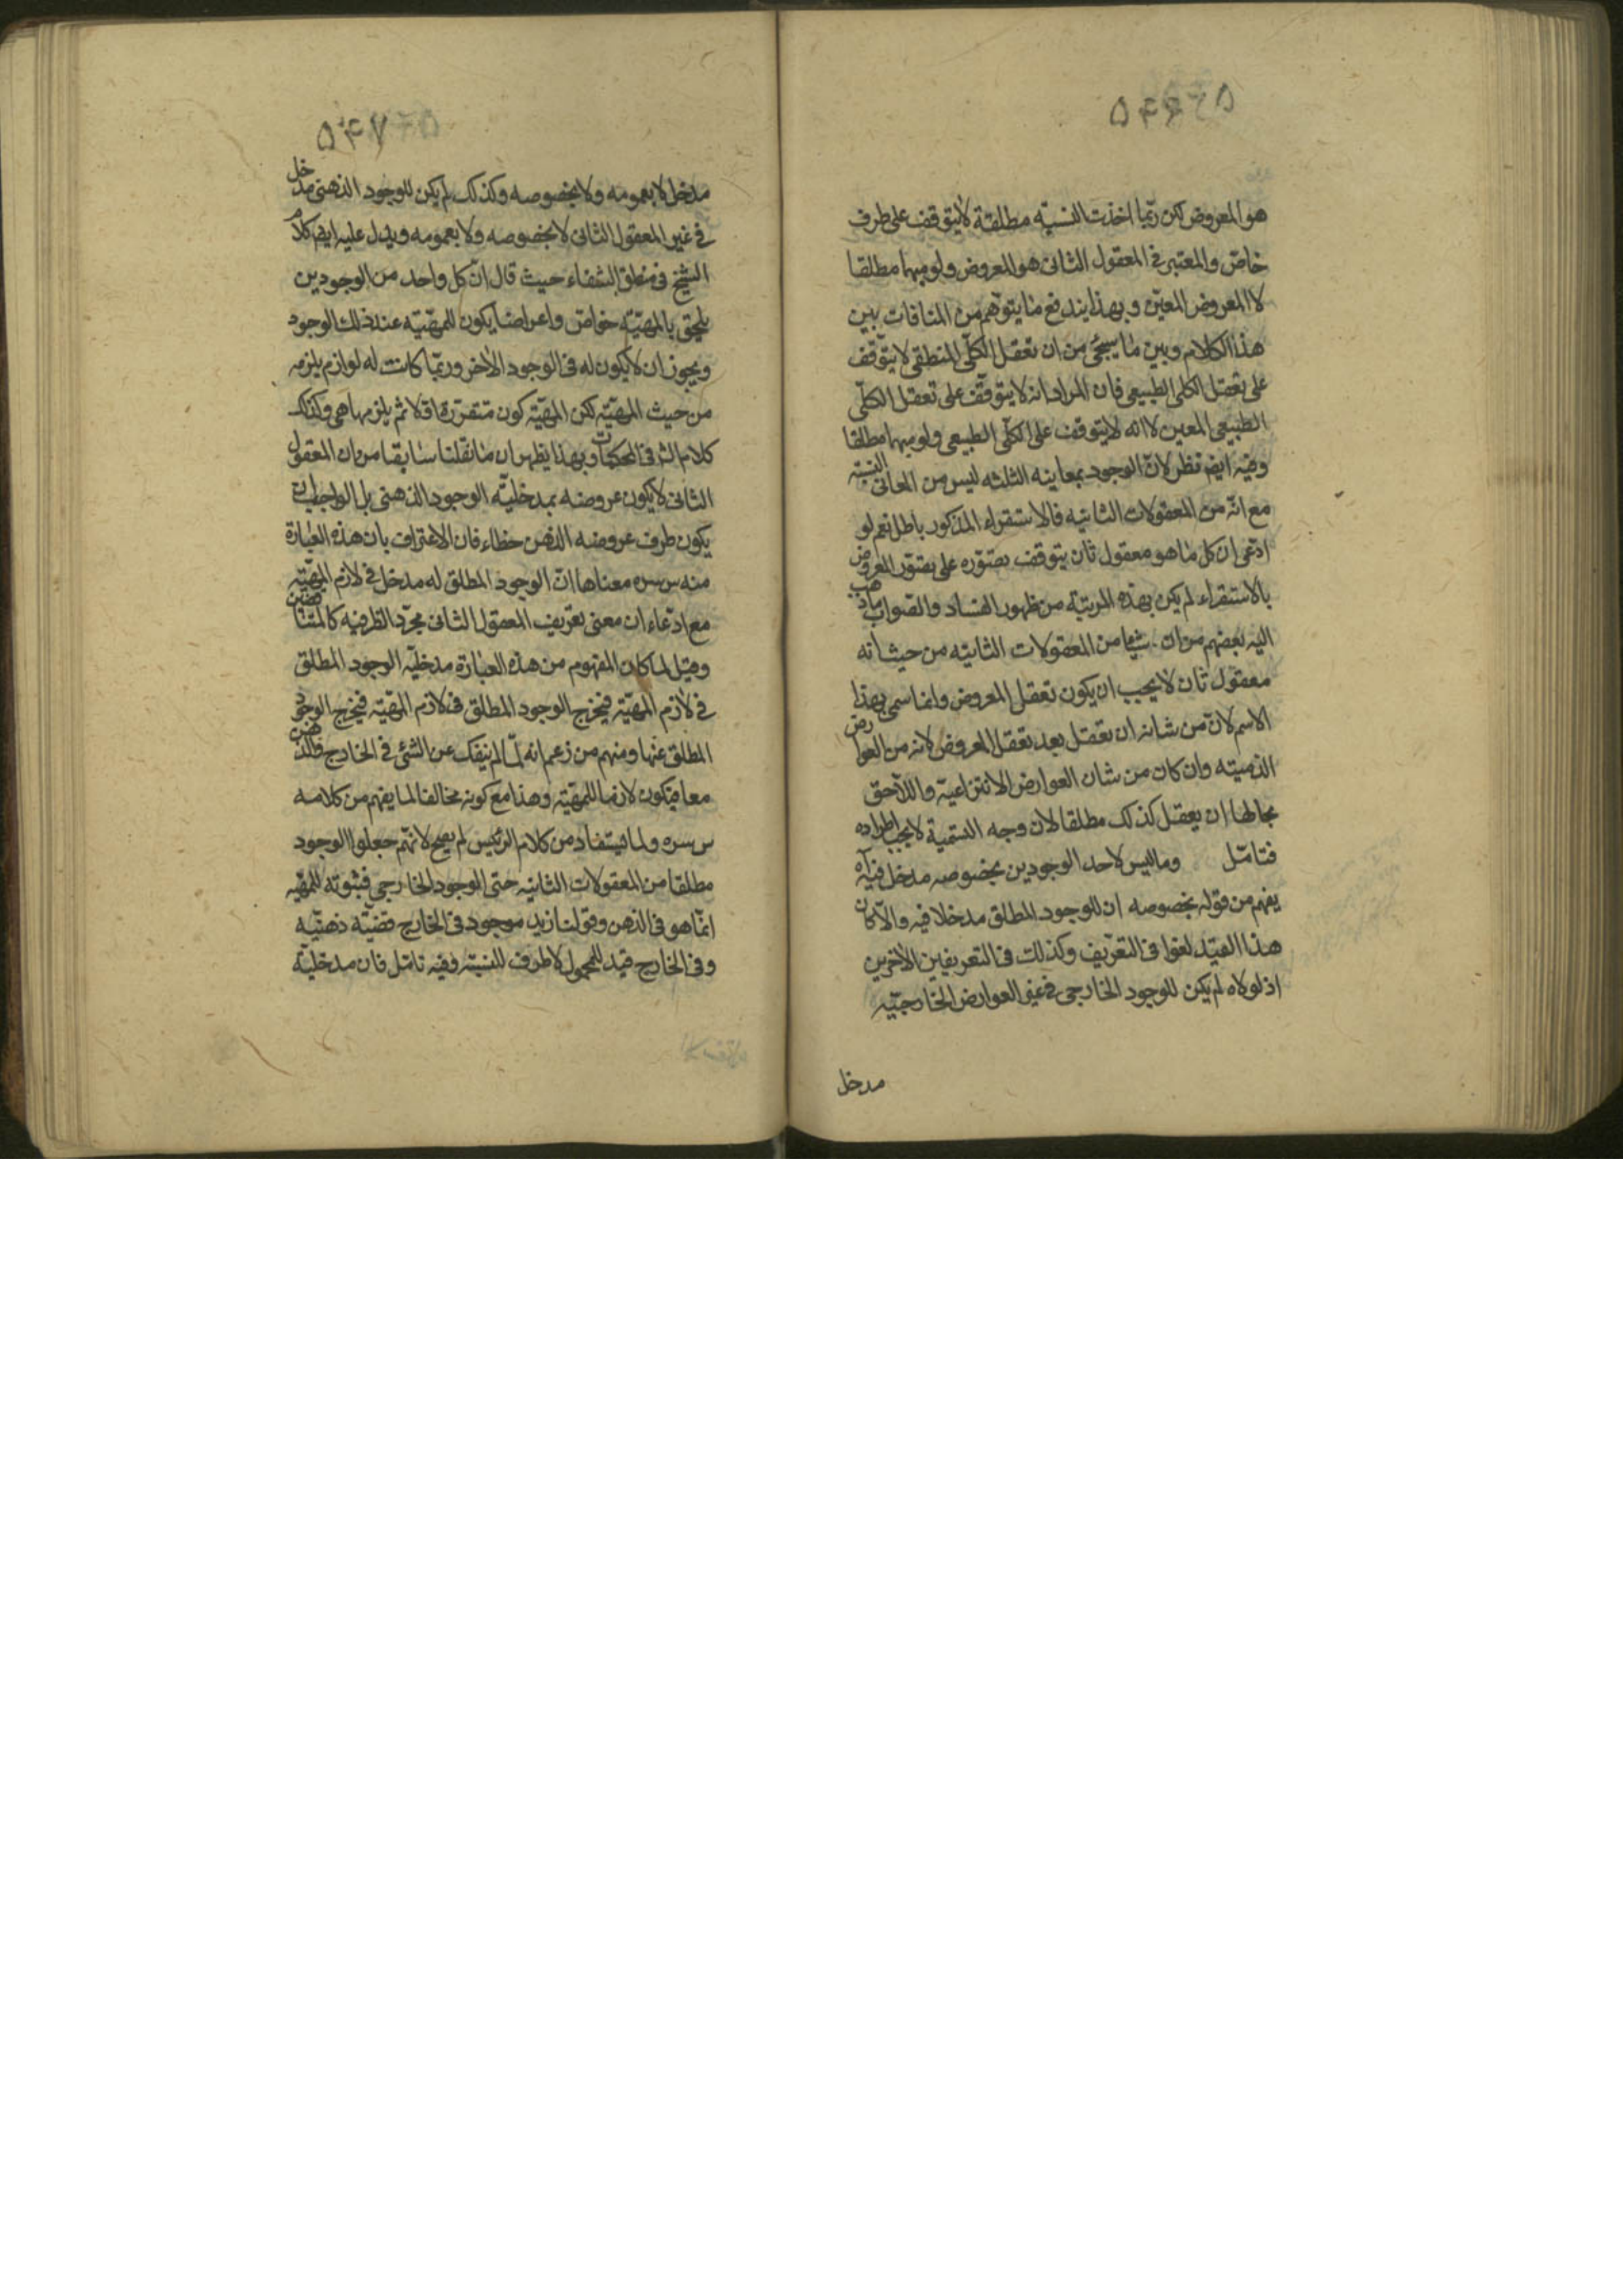 هو المعروض لكن ربّما اخذت النسبته مطلقة لا يتوقف على طرف
خاصّ والمعتبر فى المعقول الثانى هو المعروض ولو مبهما مطلقا
لا المعروض المعيّن وبهذا يندفع ما يتوهّم من المنافات بين
هذا الكلام وبين ما سيجئ من ان تعقل الكلّى المنطقى لا يتوقف
على تعقل الكلى الطبيعى فان المراد انه لا يتوقّف على تعقل الكلّى
الطبيعى المعين لا انه لا يتوقف على الكلّى الطبيعى ولو مبهما مطلقا
وفيه ايضم نظر لانّ الوجود بمعاينه الثلثه ليس من المعانى النسبته
مع انّه من المعقولات الثانيه فالاستقراء المذكور باطل نعم لو
ادّعى ان كل ما هو معقول ثان يتوقف تصوّره على تصوّر المعروض
بالاستقراء لم يكن بهذه المرتبّة من ظهور الفساد والصواب ماذهب
اليه بعضهم من ان شيئا من المعقولات الثانيّه من حيث انه
معقول ثان لا يجب ان يكون تعقل المعروض وانما سمى بهذا
الاسم لانّ من شانه ان تعقل بعد تعقل المعروض لانه من العوارض
الذهنيته وان كان من شان العوارض الانتزاعيّة واللاحق
بحالها ان يعقل كذلك مطلقا لان وجه التسمية لا يجب اطراده
فتامّل وما ليس لاحد الوجودين بخصوصه مدخل فيه آه
يفهم من قوله بخصوصه ان للوجود المطلق مدخلا فيه والّا كان
هذا القيّد لغوا فى التعريف وكذلك فى التعريفين الاخرين
اذ لولاه لم يكن للوجود الخارجى فى غير العوارض الخارجيّه
مدخل
۵۴۷
مدخل لا بعمومه ولا بخصوصه وكذلك لم يكن للوجود الذهنى مدخل
فى غير المعقول الثانى لا بخصوصه ولا بعمومه ويدل عليه ايضم كلام
الشيخ فى منطق الشفاء حيث قال انّ كل واحد من الوجودين
يلحق بالمهيّته خواصّ واعراضا يكون للمهيّته عند ذلك الوجود
ويجوز ان لا يكون له فى الوجود الاخر وربّما كانت له لوازم يلزمه
من حيث المهيّته لكن المهيّته كون متقررة اولا ثم يلزمها هى وكذلك
كلام الشر فى المحكمات وبهذا يظهر ان ما نقلنا سابقا من ان المعقول
الثانى لا يكون عروضه بمدخليّه الوجود الذهنى بل الواجب ان
يكون طرف عروضه الذهن خطاء فان الاعتراف بان هذه العبارة
منه س سره معناها انّ الوجود المطلق له مدخل فى لازم المهيّته
مع ادّعاء ان معنى تعريف المعقول الثانى مجرّد الظرفيه كالمتناقضين
وقيل لما كان المفهوم من هذه العبارة مدخليّه الوجود المطلق
فى لازم المهيّته فيخرج الوجود المطلق فى لازم المهيّته فيخرج الوجود
المطلق عنها ومنهم من زعم انه لمّا لم ينفك عن الشئ فى الخارج والذهن
معا فيكون لازما للمهيّته وهذا مع كونه مخالفا لما يفهم من كلامه
س سره ولما يستفاد من كلام الرئيس لم يصح لانهّم جعلوا الوجود
مطلقا من المعقولات الثانيه حتى الوجود الخارجى فثبوته للمهيّه
انّما هو فى الذهن وقولنا زيد موجود فى الخارج قضيّة ذهنيّه
وفى الخارج قيد للمحمول لا طرف للنسبته وفيه تامّل فان مدخليّة